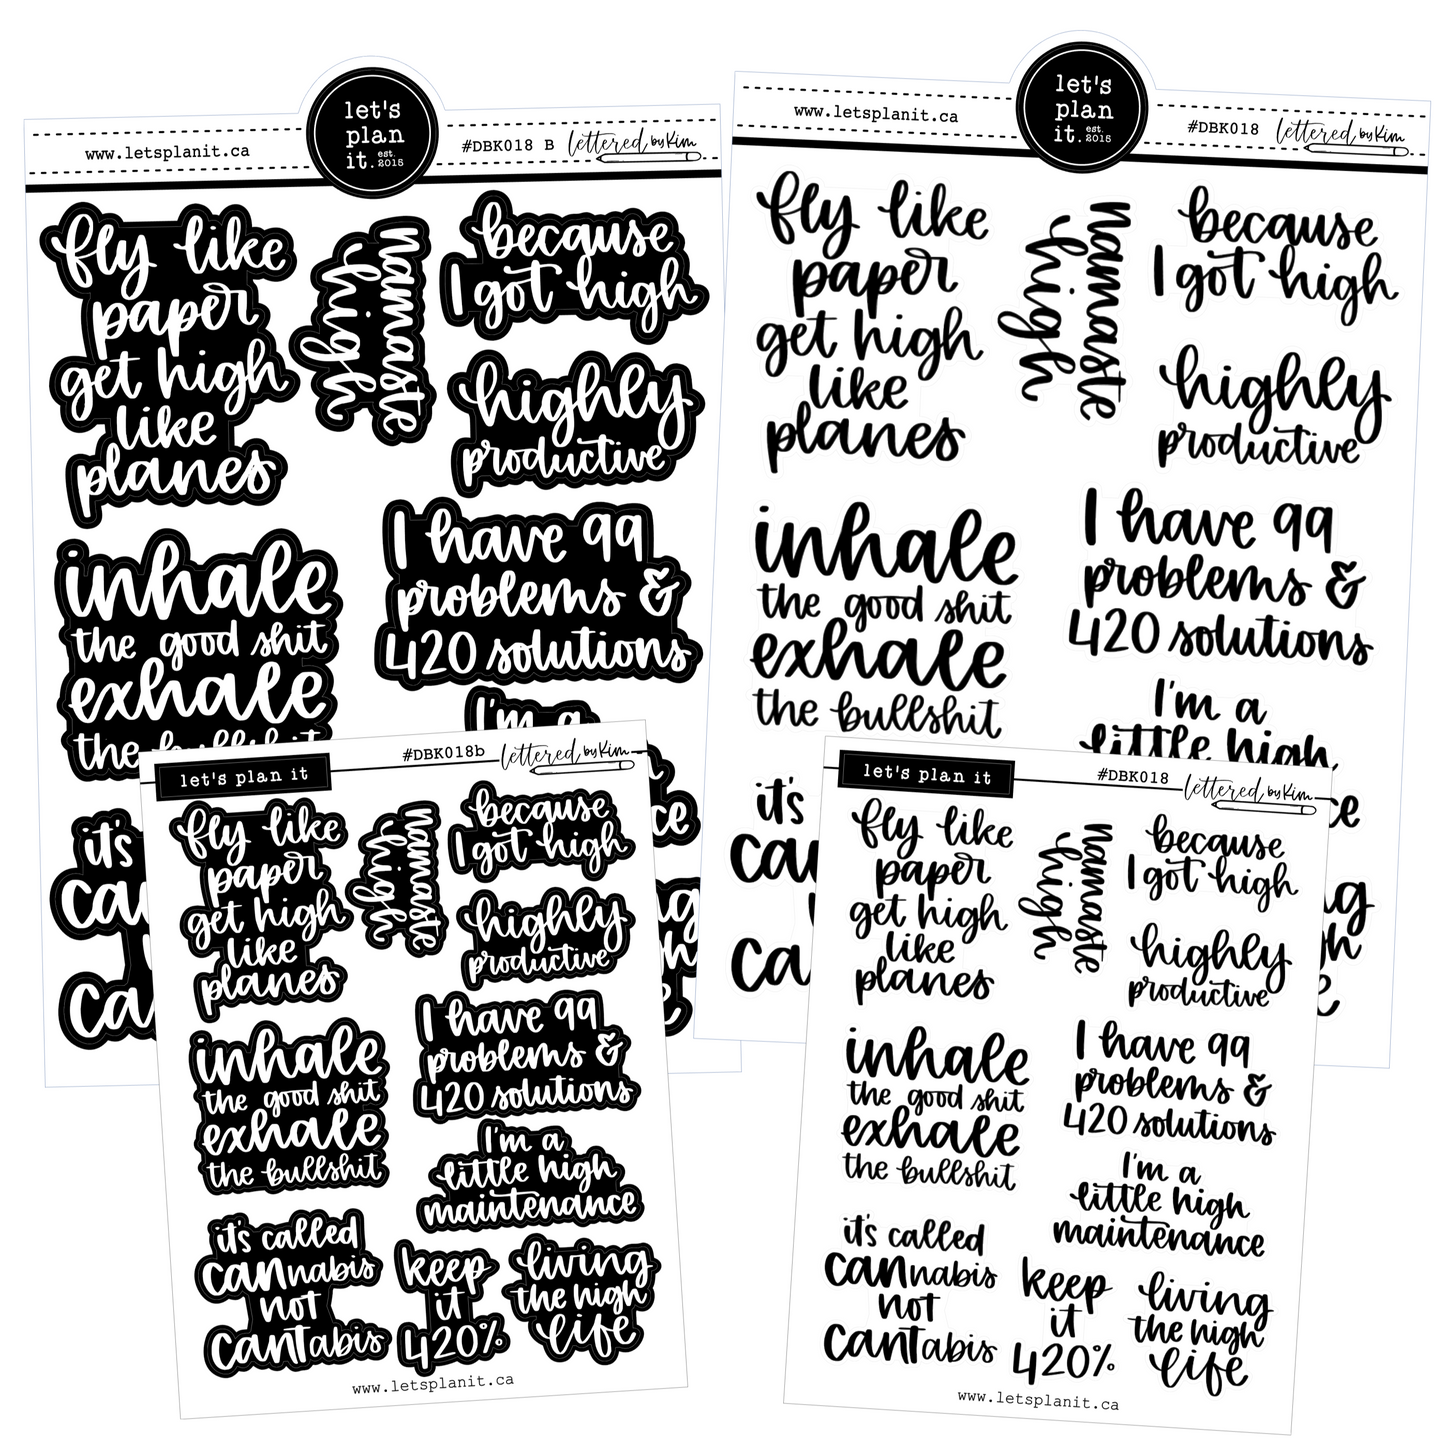 let's
plan
it. est. 2015
www.letsplanit.ca
#DBK018 B lettered by Kim
fly like
paper
get high
like
planes
namaste
high
because
I got high
highly
productive
inhale
the good shit
exhale
the bullshit
I have 99
problems &
420 solutions
I'm a
it's
let's
plan
it. est. 2015
www.letsplanit.ca
#DBK018 lettered by Kim
fly like
paper
get high
like
planes
namaste
high
because
I got high
highly
productive
inhale
the good shit
exhale
the bullshit
I have 99
problems &
420 solutions
I'm a
little high
it's
let's plan it
#DBK018b lettered by Kim
fly like
paper
get high
like
planes
namaste
high
because
I got high
highly
productive
inhale
the good shit
exhale
the bullshit
I have 99
problems &
420 solutions
I'm a
little high
maintenance
it's called
CANnabis
not
CANTabis
keep
it
420%
living
the high
life
www.letsplanit.ca
let's plan it
#DBK018 lettered by Kim
fly like
paper
get high
like
planes
namaste
high
because
I got high
highly
productive
inhale
the good shit
exhale
the bullshit
I have 99
problems &
420 solutions
I'm a
little high
maintenance
it's called
CANnabis
not
CANTabis
keep
it
420%
living
the high
life
www.letsplanit.ca